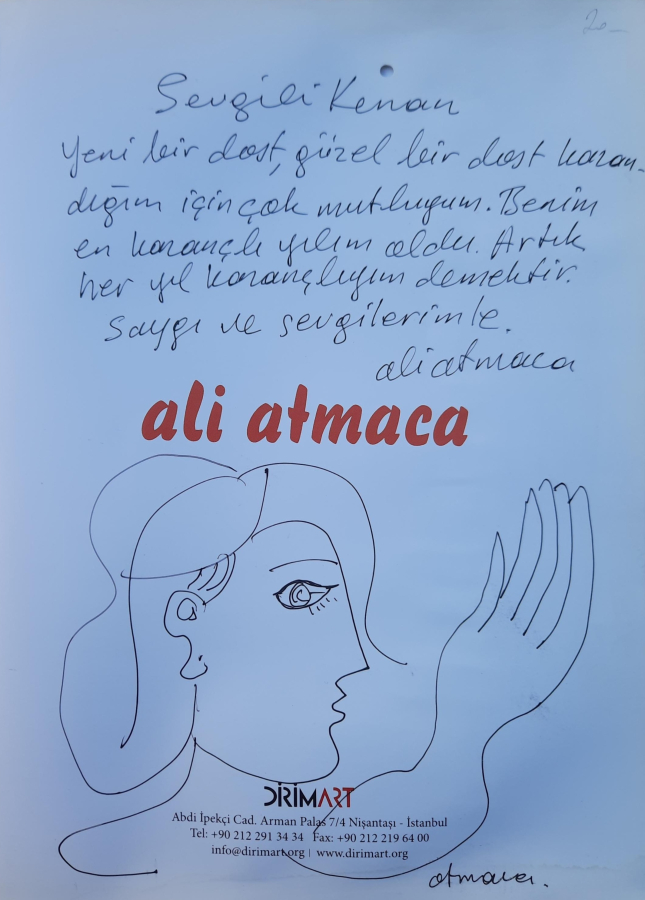 20-
Sevgili Kenan
Yeni bir dost, güzel bir dost kazan-
dığım için çok mutluyum. Benim
en kazançlı yılım oldu. Artık
her yıl kazançlıyım demektir.
Saygı ve sevgilerimle.
ali atmaca
ali atmaca
DİRİMART
Abdi İpekçi Cad. Arman Palas 7/4 Nişantaşı - İstanbul
Tel: +90 212 291 34 34 Fax: +90 212 219 64 00
info@dirimart.org | www.dirimart.org
atmaca.